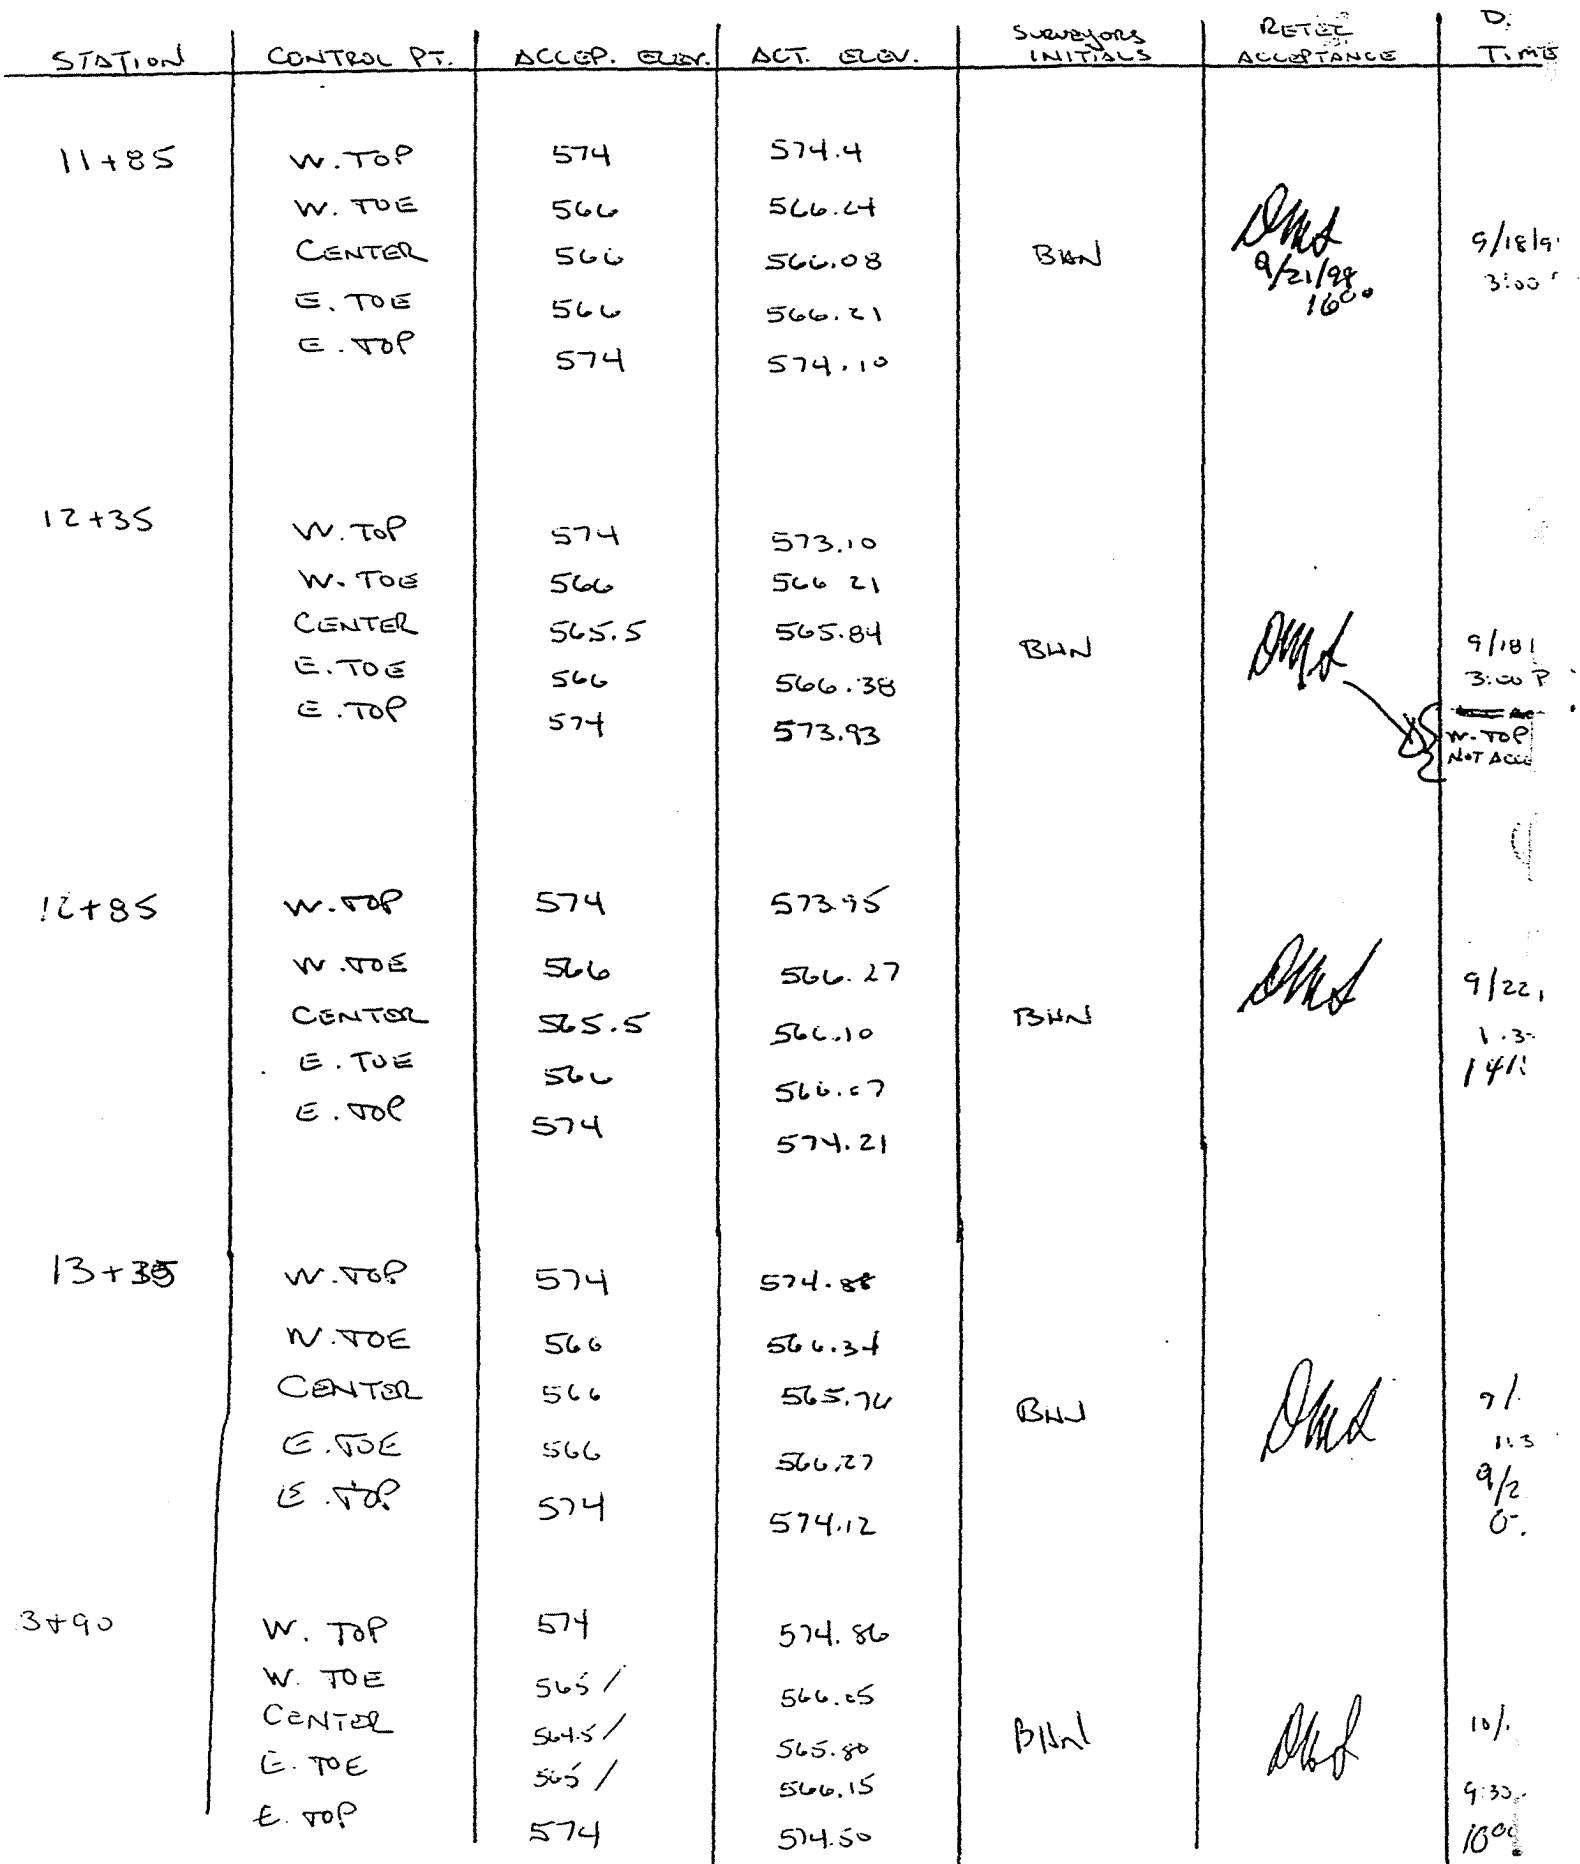 STATION CONTROL PT. ACCEP. ELEV. ACT. ELEV. SURVEYORS INITIALS RETEC ACCEPTANCE D. TIME
11+85 W. TOP 574 574.4
W. TOE 566 566.24
CENTER 566 566.08 BHN DMS 9/18/9 3:00
9/21/98
1600
E. TOE 566 566.21
E. TOP 574 574.10
12+35 W. TOP 574 573.10
W. TOE 566 566 21
CENTER 565.5 565.84 BHN DMS 9/18/
E. TOE 566 566.38 3:00 P
E. TOP 574 573.93 W. TOP
NOT ACCE
12+85 W. TOP 574 573.95
W. TOE 566 566.27 DMS 9/22,
CENTER 565.5 566.10 BHN 1.3
E. TOE 566 566.07 141
E. TOP 574 574.21
13+35 W. TOP 574 574.88
W. TOE 566 566.34
CENTER 566 565.76 BHN DMS 9/
E. TOE 566 566.27 1:3
E. TOP 574 574.12 9/2
3+90 W. TOP 574 574.86
W. TOE 565 / 566.05
CENTER 564.5 / 565.80 BHN DMS 10/
E. TOE 565 / 566.15 9:30
E. TOP 574 574.50 1000